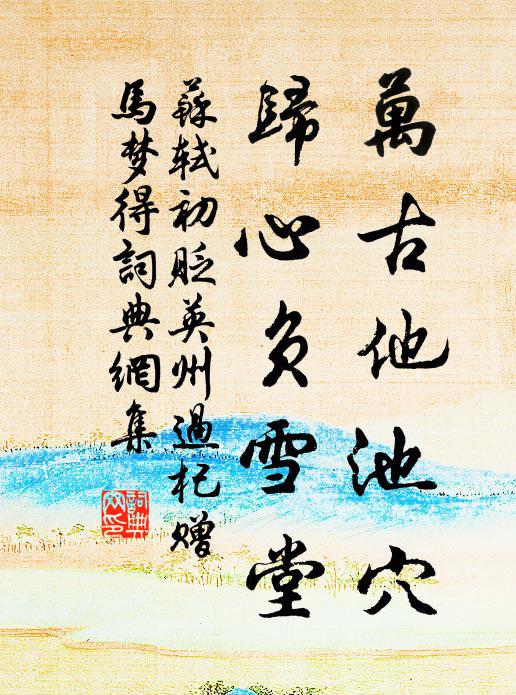 萬古他池穴
歸心負雪堂
蘇軾初貶英州過杞贈
馬梦得詞典網集